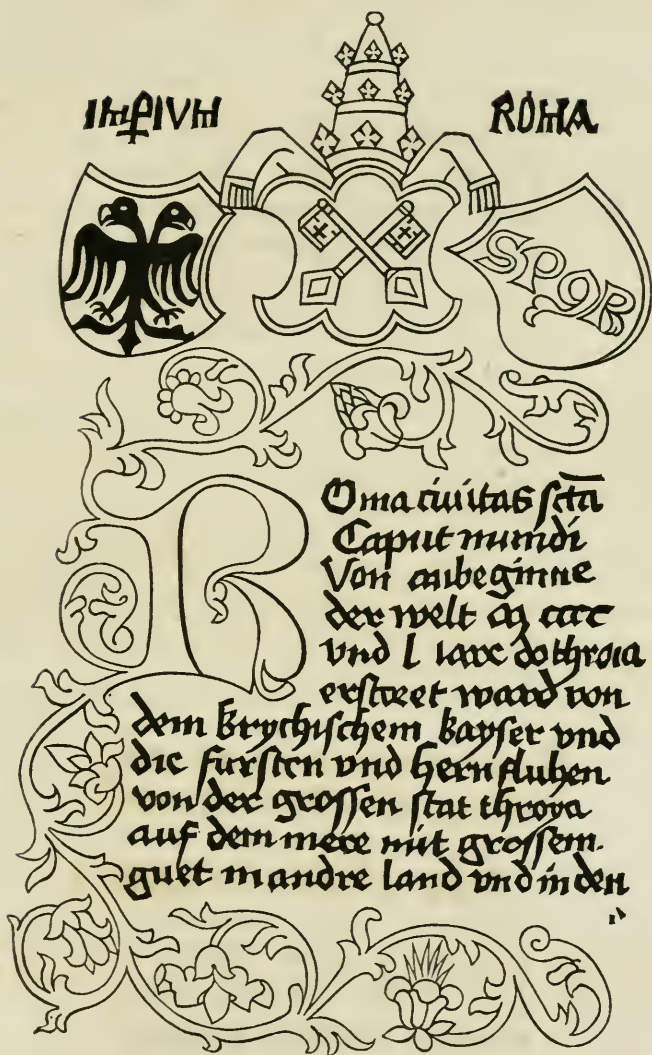 Imꝑivm Roma
SPQR
Roma ciuitas sctā
Caput mundi
Von anbeginne
der welt
vnd L iare do throia
erstoret ward von
dem krychischem kayser vnd
die fursten vnd hern fluhen
von der grossen stat throya
auf dem mere mit grossem
guet in andre land vnd in den